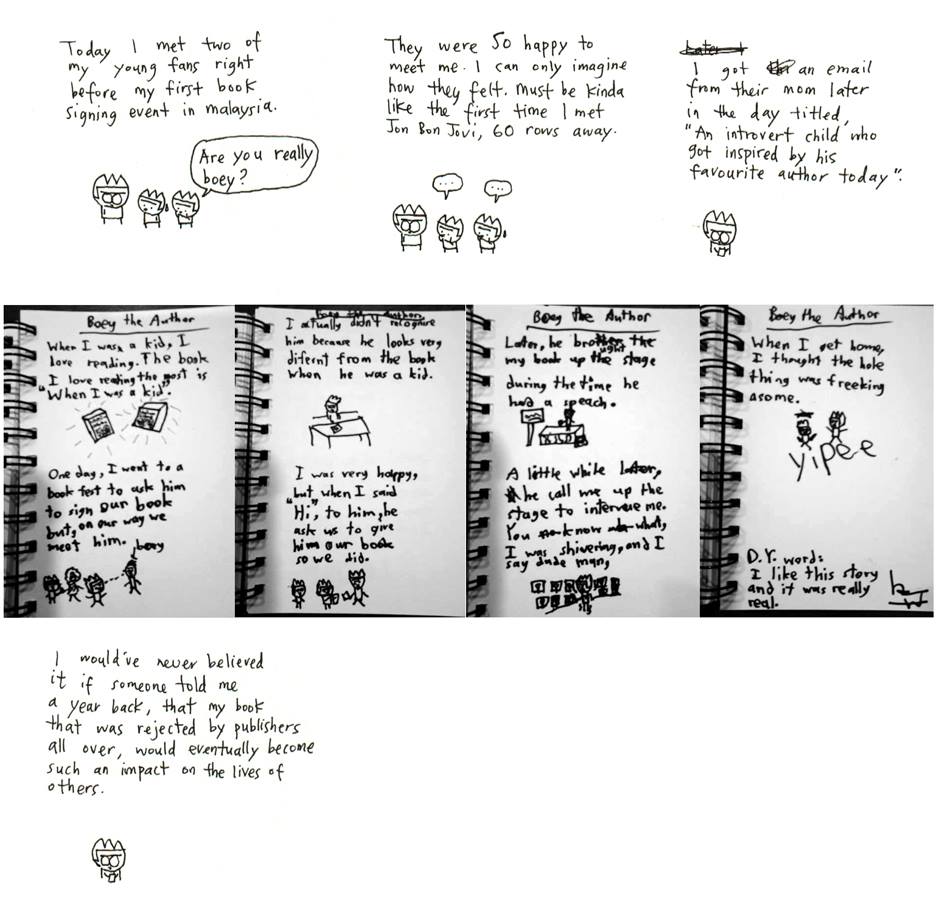 Today I met two of
my young fans right
before my first book
signing event in malaysia.
Are you really
boey?
They were SO happy to
meet me. I can only imagine
how they felt. Must be kinda
like the first time I met
Jon Bon Jovi, 60 rows away.
...
...
I got an email
from their mom later
in the day titled,
"An introvert child who
got inspired by his
favourite author today".
Boey the Author
When I was a kid, I
love reading. The book
I love reading the most is
"When I was a kid".
One day, I went to a
book fest to ask him
to sign our book
but, on our way we
meet him.
boey
I actually didn't recognise
him because he looks very
difernt from the book
when he was a kid.
I was very happy,
but when I said
"Hi", to him, he
ask us to give
him our book
so we did.
Boey the Author
Later, he the
my book up the stage
during the time he
had a speach.
A little while later,
he call me up the
stage to interveiw me.
You know what,
I was shivering, and I
say dude man,
Boey the Author
When I get home,
I thought the hole
thing was freeking
asome.
Yipee
D.Y. words:
I like this story
and it was really
real.
I would've never believed
it if someone told me
a year back, that my book
that was rejected by publishers
all over, would eventually become
such an impact on the lives of
others.